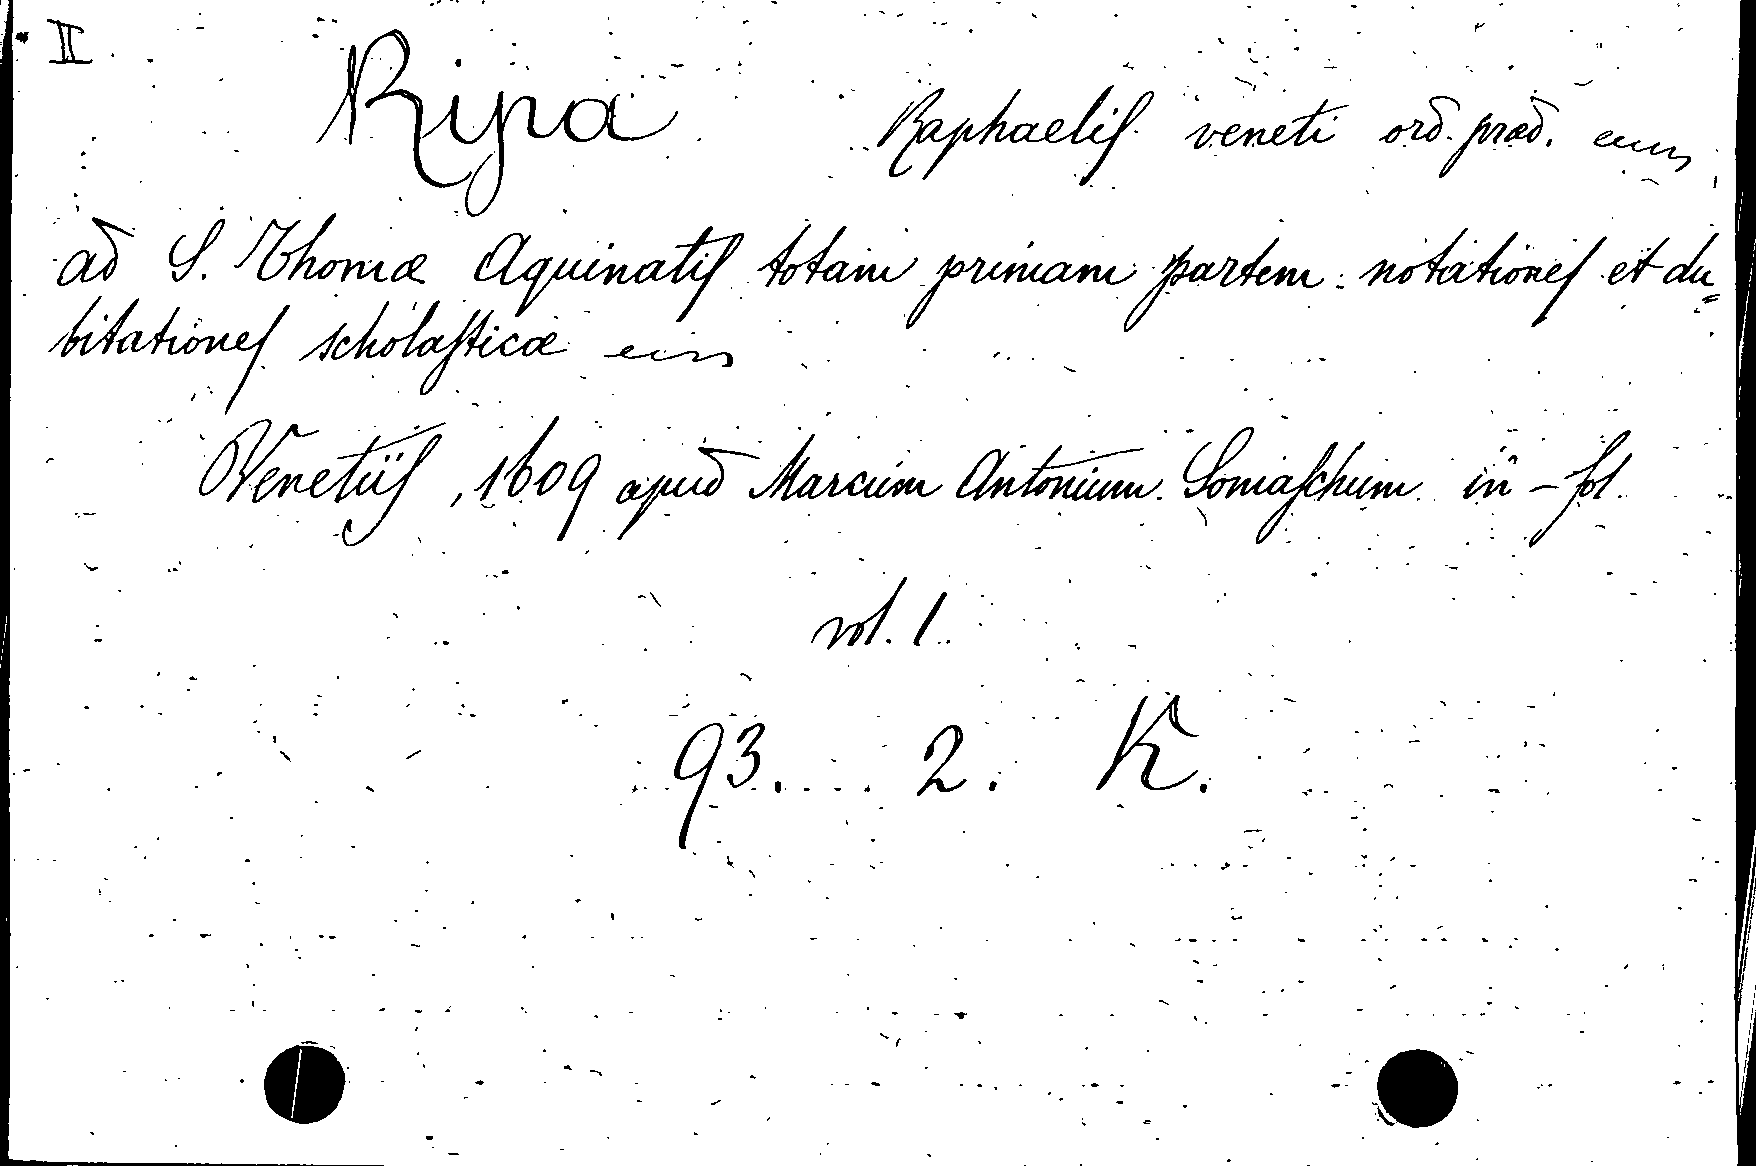 II
Ripa Raphaelis veneti ord. præd.
ad S. Thomæ Aquinatis totam primam partem notationes et du=
bitationes scholasticæ
Venetiis, 1609 apud Marcum Antonium Somaschum in-fol.
vol. 1.
93. 2. K.